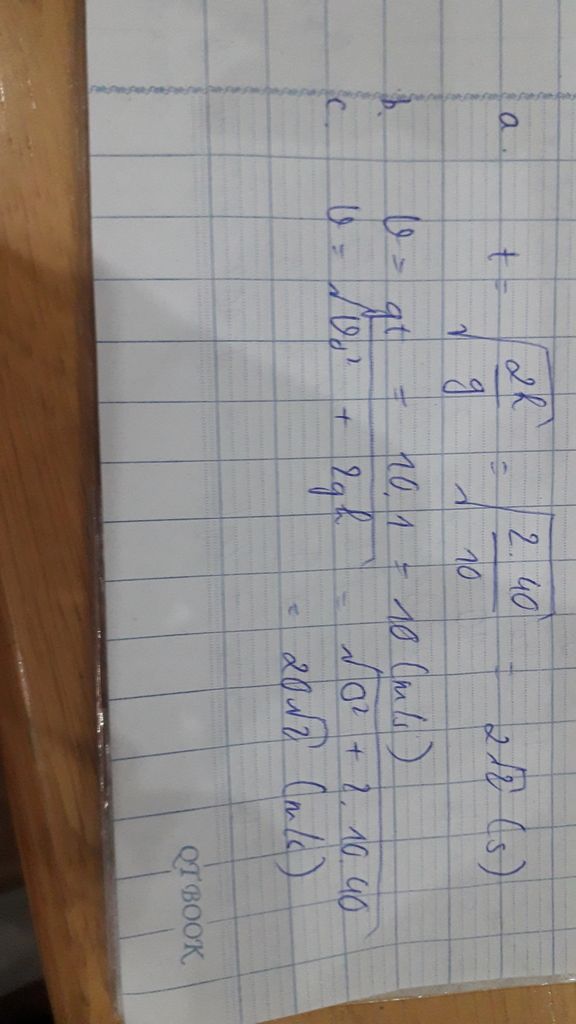 a. t = √(2h/g) = √(2.40/10) = 2√2 (s)
b. v = gt = 10.1 = 10 (m/s)
c. v = √(v₀² + 2gh) = √(0² + 2.10.40)
= 20√2 (m/s)
QT BOOK